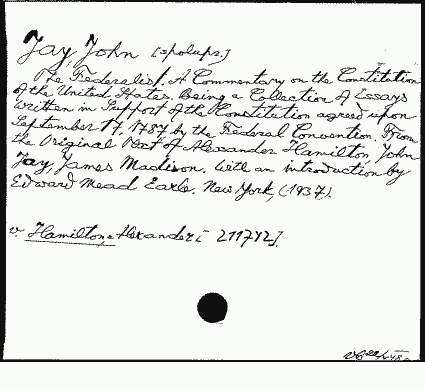 Jay, John [spółaut.]
The Federalist. A Commentary on the Constitution
of the United States. Being a Collection of Essays
written in Support of the Constitution agreed upon
September 17, 1787 by the Federal Convention. From
the Original Text of Alexander Hamilton, John
Jay, James Madison. With an introduction by
Edward Mead Earle. New York, (1937).
v. Hamilton, Alexander [211742].